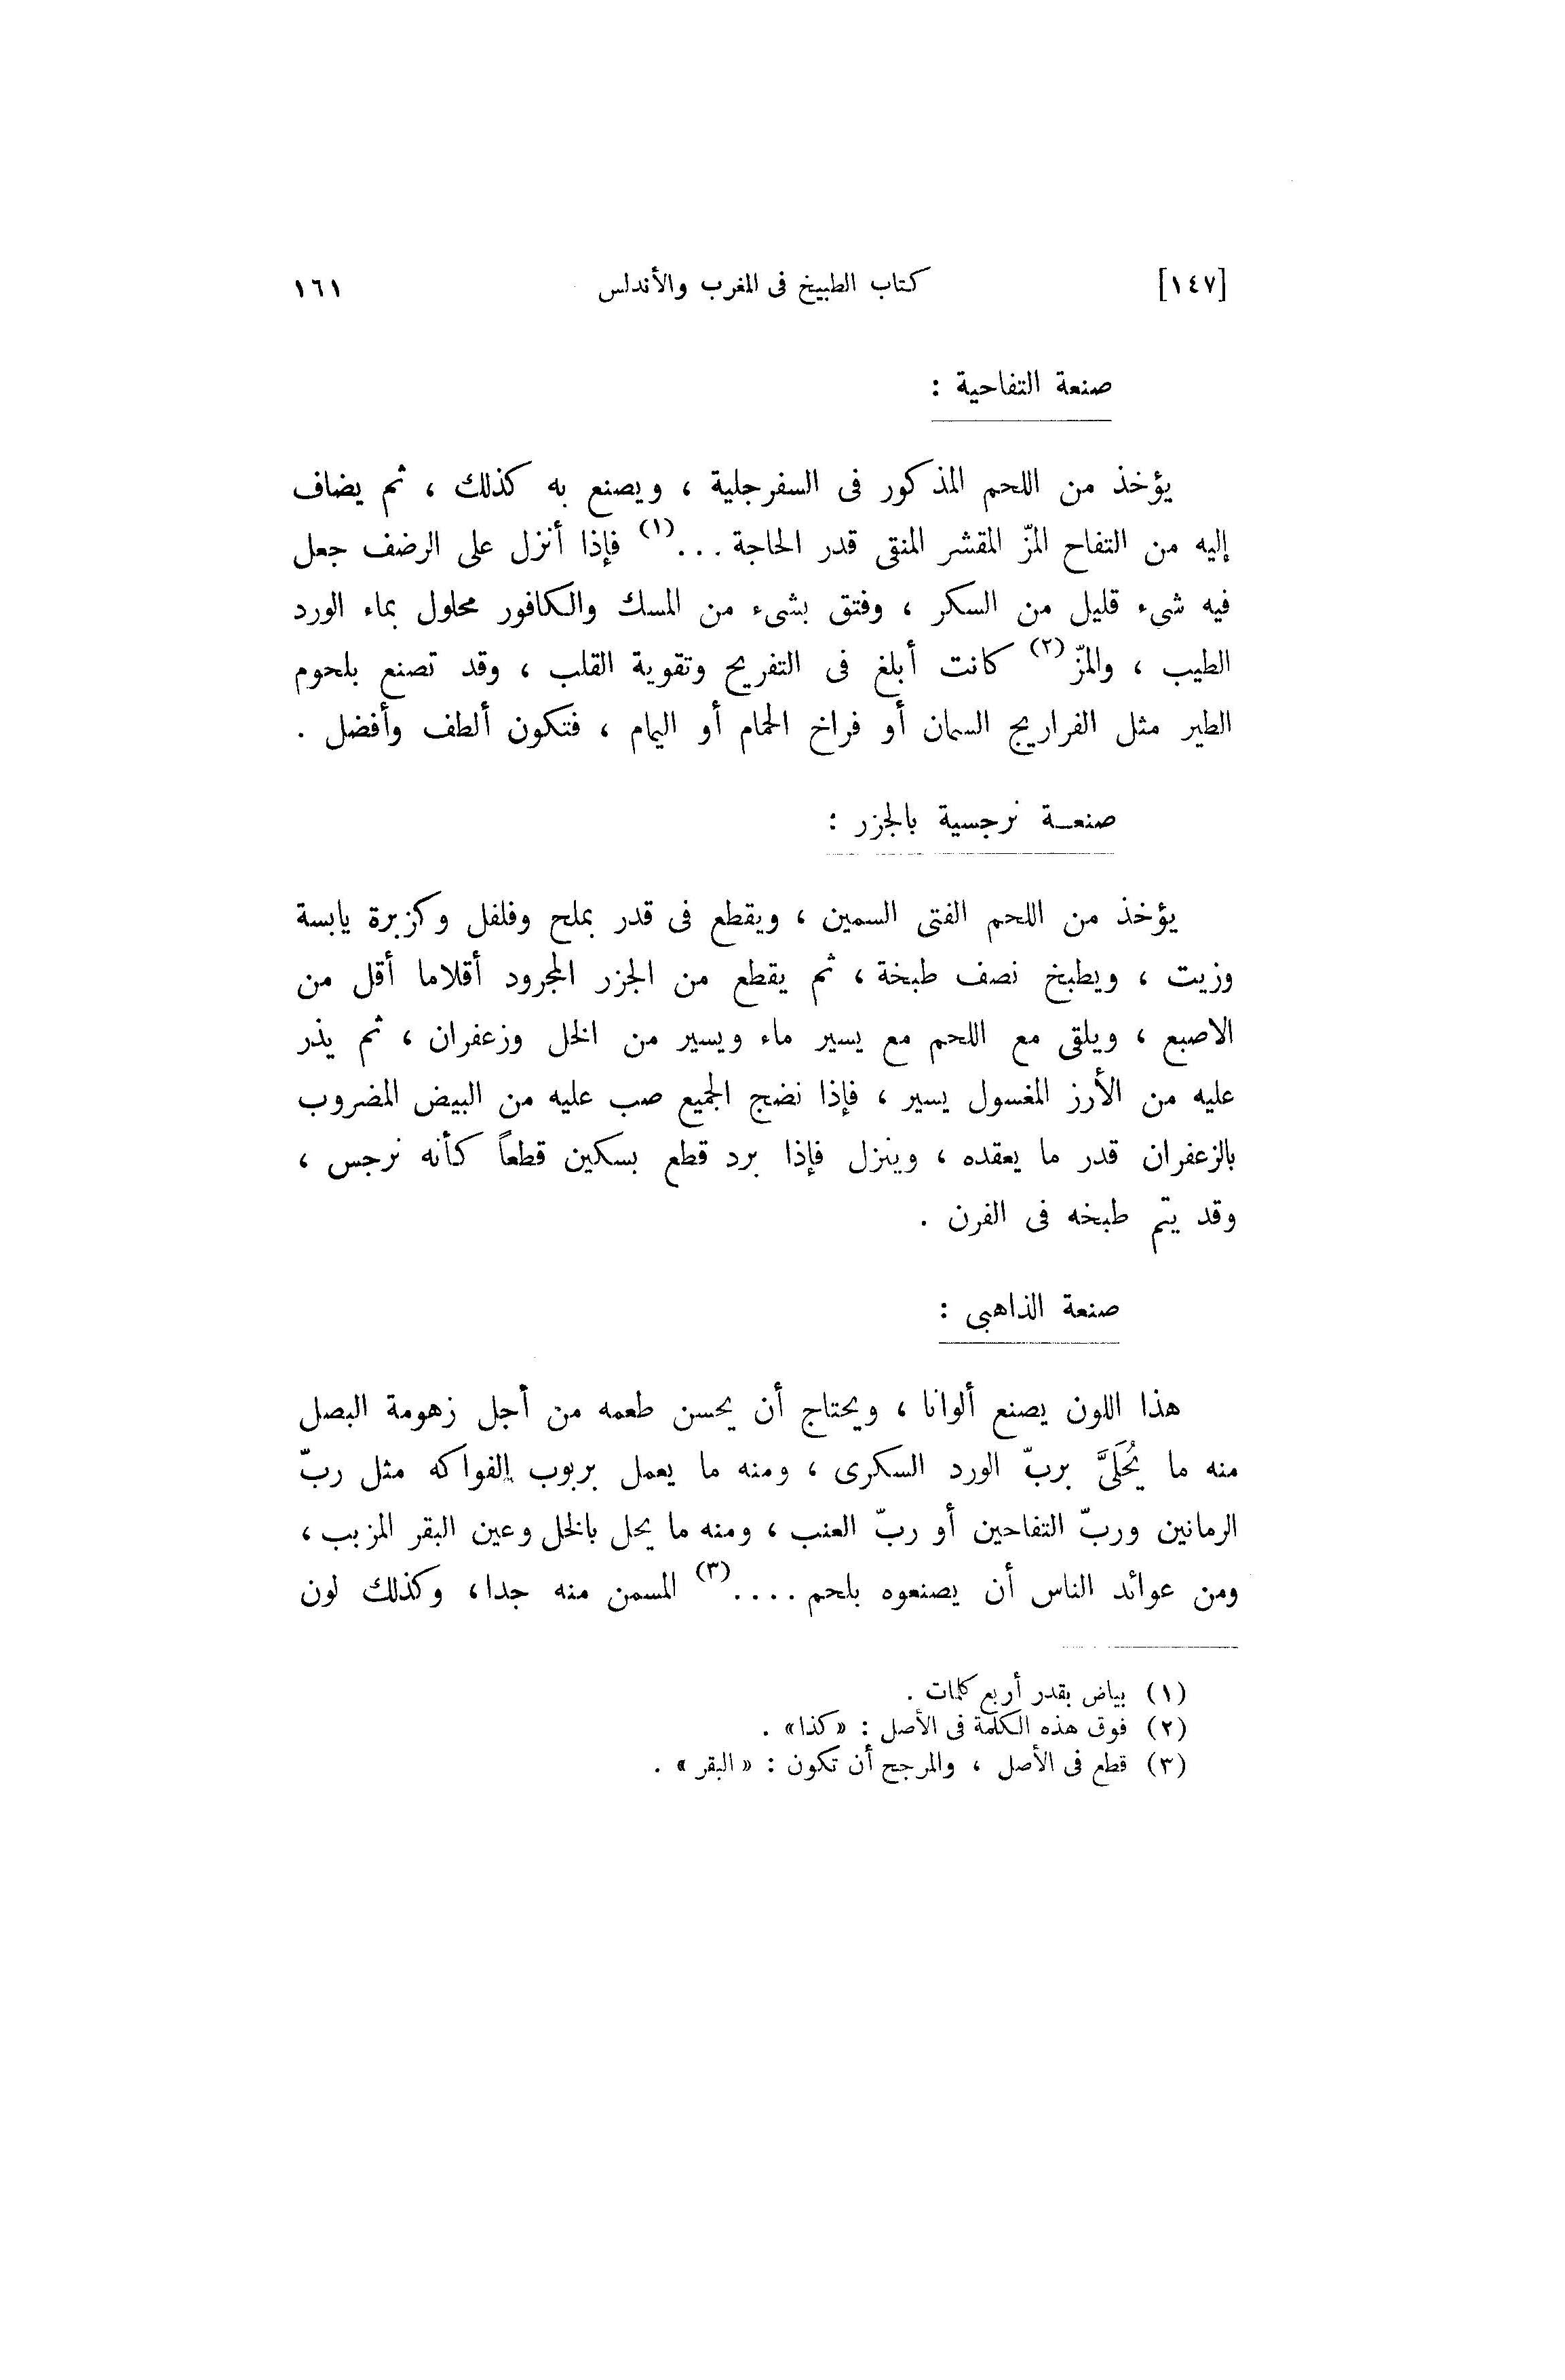 [١٤٧] كتاب الطبيخ فى المغرب والأندلس ١٦١
صنعة التفاحية :
يؤخذ من اللحم المذكور فى السفرجلية ، ويصنع به كذلك ، ثم يضاف
إليه من التفاح المزّ المقشر المنقى قدر الحاجة ...(١) فإذا أنزل على الرضف جعل
فيه شىء قليل من السكر ، وفتق بشىء من المسك والكافور محلول بماء الورد
الطيب ، والمزّ(٢) كانت أبلغ فى التفريح وتقوية القلب ، وقد تصنع بلحوم
الطير مثل الفراريج السمان أو فراخ الحمام أو اليمام ، فتكون ألطف وأفضل .
صنعــة نرجسية بالجزر :
يؤخذ من اللحم الفتى السمين ، ويقطع فى قدر بملح وفلفل وكزبرة يابسة
وزيت ، ويطبخ نصف طبخة ، ثم يقطع من الجزر المجرود أقلاما أقل من
الاصبع ، ويلقى مع اللحم مع يسير ماء ويسير من الخل وزعفران ، ثم يذر
عليه من الأرز المغسول يسير ، فإذا نضج الجميع صب عليه من البيض المضروب
بالزعفران قدر ما يعقده ، وينزل فإذا برد قطع بسكين قطعاً كأنه نرجس ،
وقد يتم طبخه فى الفرن .
صنعة الذاهبى :
هذا اللون يصنع ألوانا ، ويحتاج أن يحسن طعمه من أجل زهومة البصل
منه ما يُحَلىَّ بربّ الورد السكرى ، ومنه ما يعمل بربوب الفواكه مثل ربّ
الرمانين وربّ التفاحين أو ربّ العنب ، ومنه ما يحل بالخل وعين البقر المزبب ،
ومن عوائد الناس أن يصنعوه بلحم ....(٣) المسمن منه جدا ، وكذلك لون
(١) بياض بقدر أربع كلمات .
(٢) فوق هذه الكلمة فى الأصل : «كذا» .
(٣) قطع فى الأصل ، والمرجح أن تكون : « البقر » .